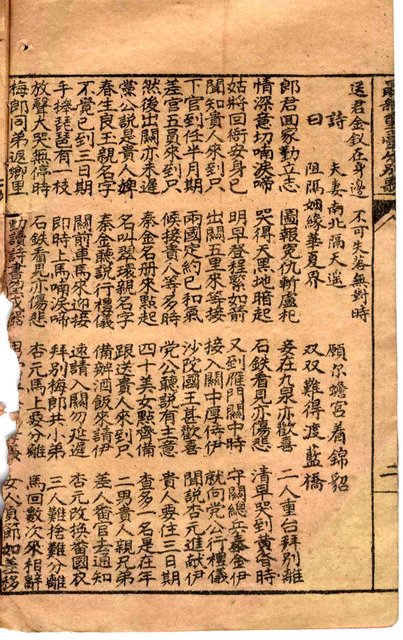 送君金釵在身邊 不可失落無對時
詩 夫妻南北隔天邊 願尔蟾宮着錦貂
曰 阻隔姻緣華夏界 双双難得渡藍橋
郎君回家勤立志 圖報冤仇斬盧杞 妾在九泉亦歡喜 二人重台拜別離
情深意切喃淚啼 哭得天黑地暗起 石鉄看見亦傷悲 清早哭到黃昏時
姑將回衙安身已 明早登程緊如箭 又到雁門關中時 守關總兵秦金伊
聞知貴人來到只 出關五里來等接 接入關中厚待伊 就向党公行禮儀
下官到任半月期 兩國定約已和氣 沙陀國王甚歡喜 聞說杏元進献伊
差官五員來到只 候接貴人等多時 党公聽說有主意 貴人要住三日期
然後出關亦未遲 秦金名册來點起 四十美女點齊備 查多一名是在年
黨公說是貴人婢 名叫翠環親名字 跟送貴人來到只 二男貴人親兄弟
春生良王親名字 秦金聽說行禮儀 備辦酒飯來請伊 差人番官去通知
不覺已到三日期 關前車馬來迎接 速請入關勿延遲 杏元改換番國衣
手捧琵琶有一枝 即時上馬喃淚啼 拜別梅郎共小弟 三人難捨難分離
放聲大哭無停時 石鉄看見亦傷悲 杏元馬上要分離 馬回數次來相辭
梅郎同弟返鄉里 勤讀詩書 女人貞節如差移
二